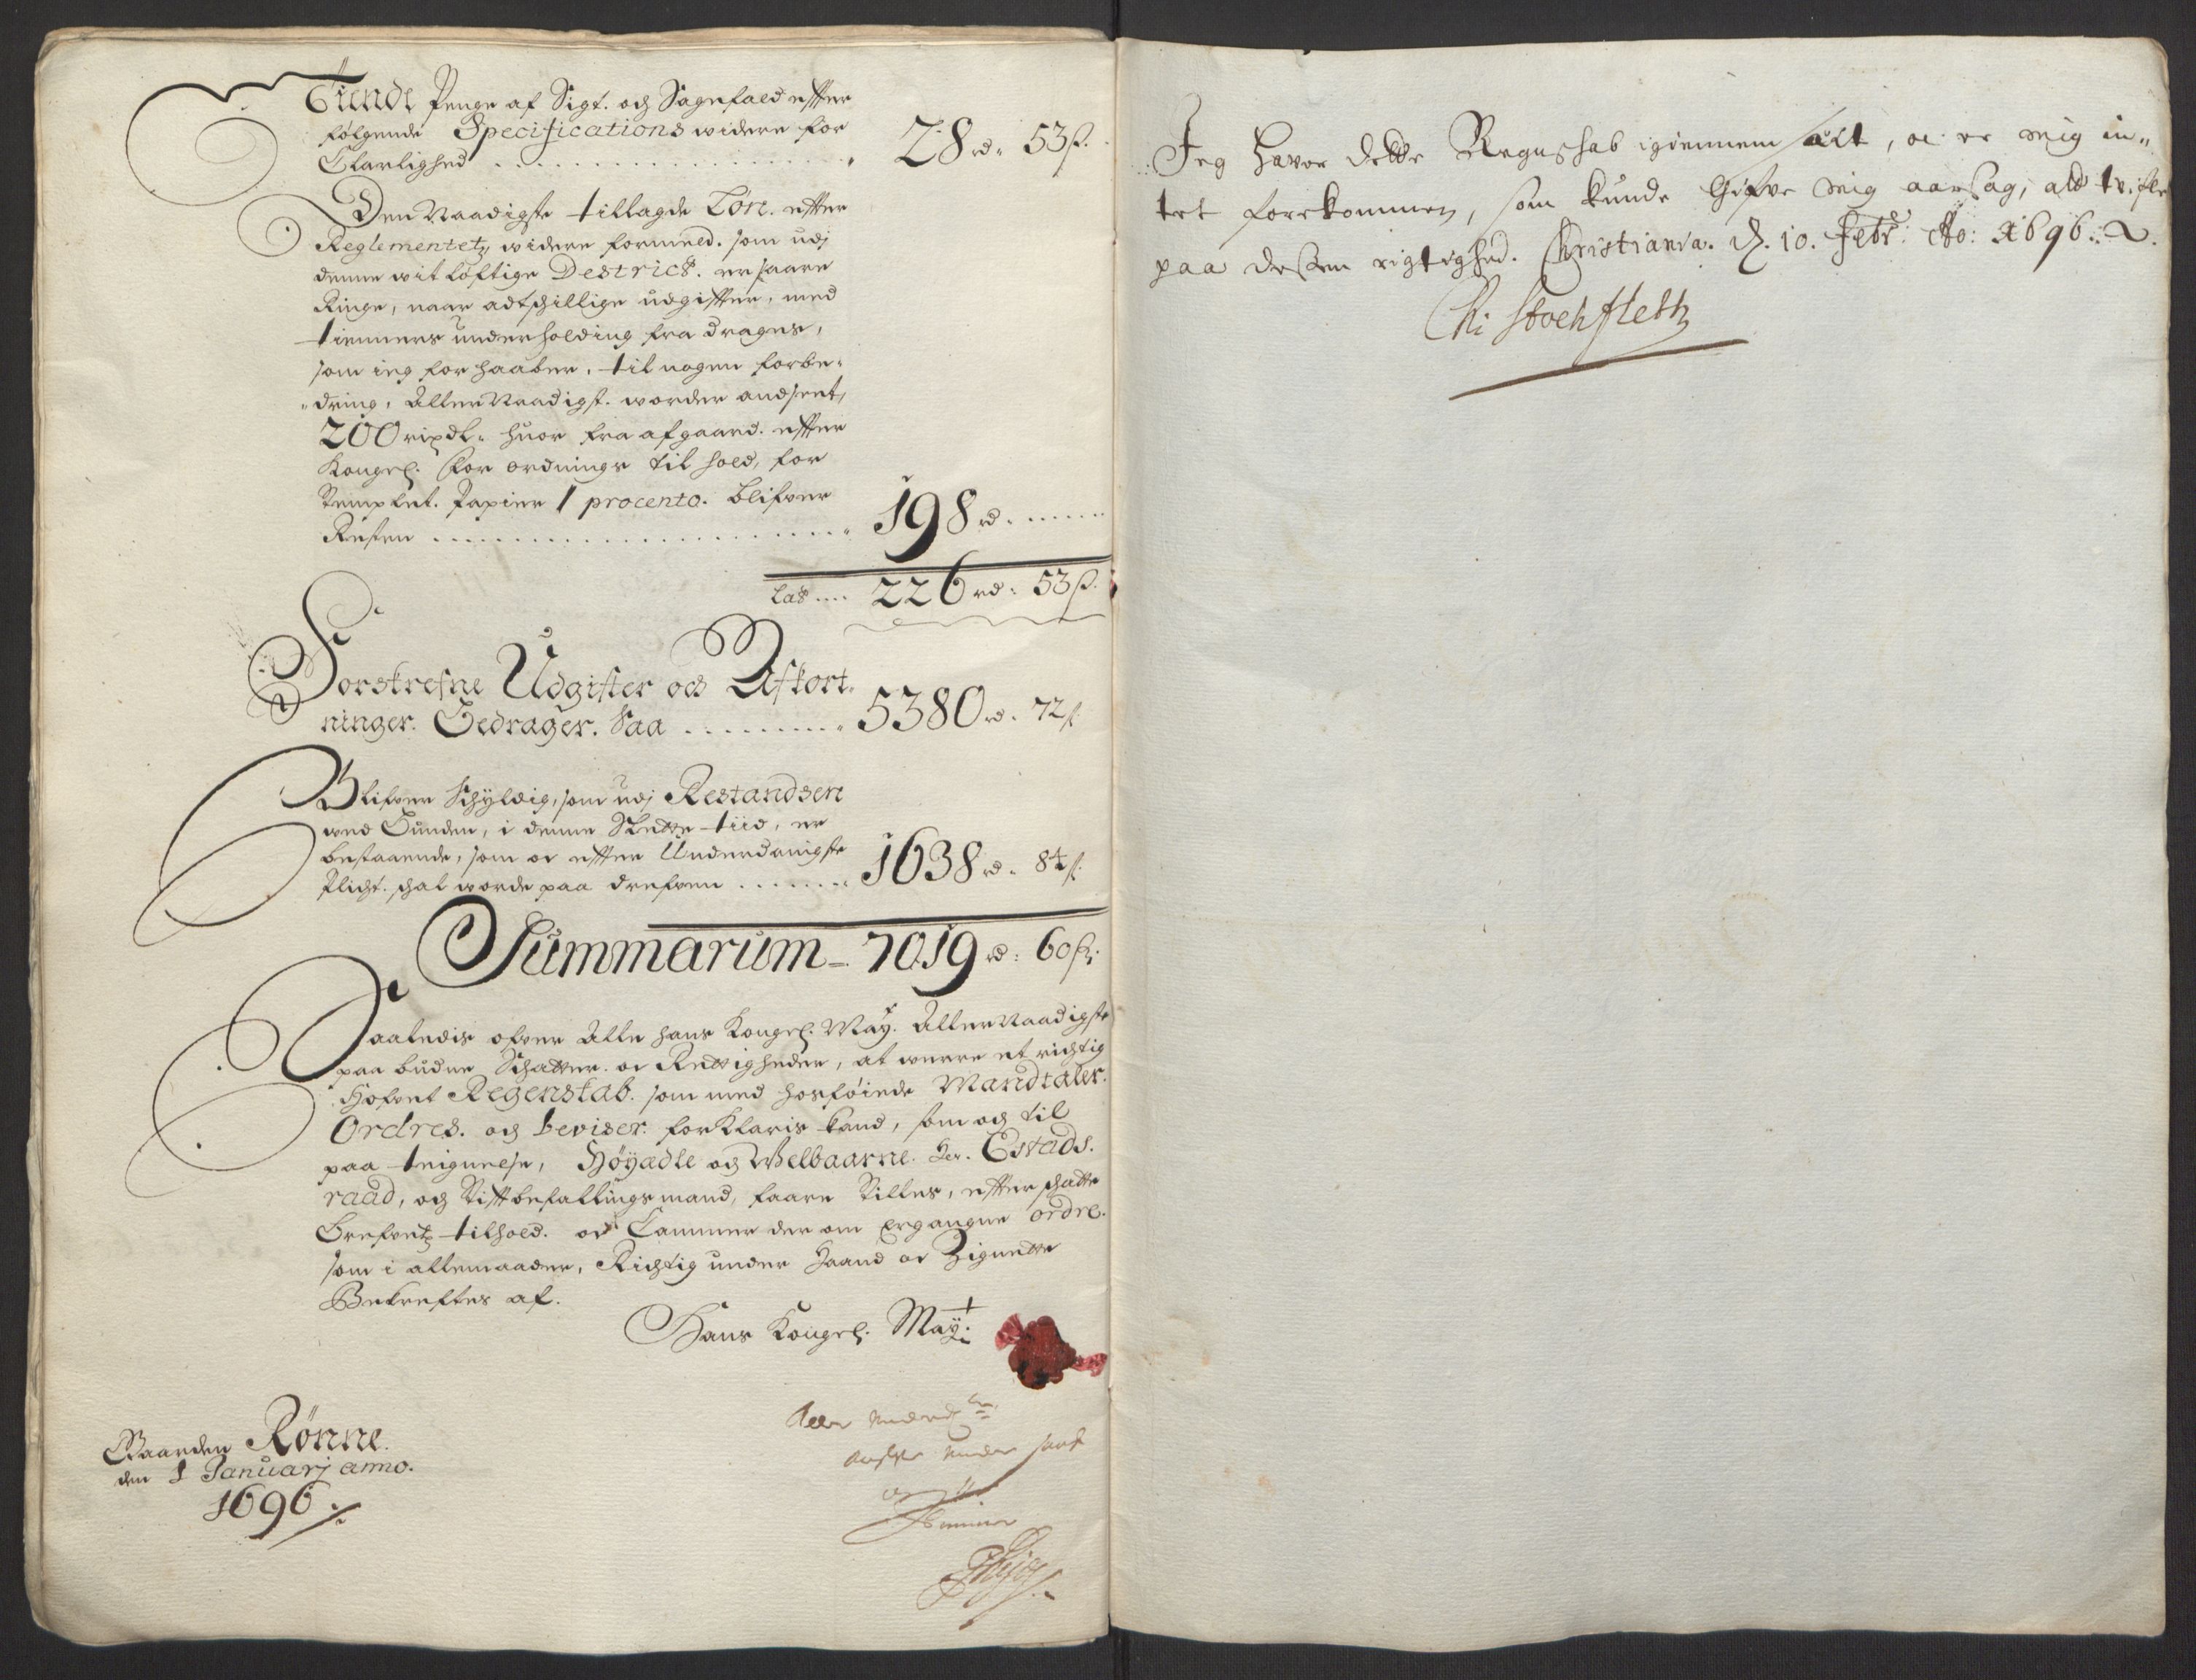 Tiende Penge af Sigt. och Sagefald effter
følgende Specifications widere for
Clarlighed . . . . . . 28 rd. 53 ß.
Den Naadigste tillagde Lön. effter
Reglementetz widere formeld. som udj
denne witløftige Destrict. er saare
Ringe, naar adtschillige udgiffter, med
tienners underholding fra drages,
som ieg forhaaber, til nogen forbe-
dring, AllerNaadigst. worder andseet,
200 rixdl. huor fra afgaard. effter
Kongel. forordnings til hold, for
Stemplet. Papier 1 procento. blifver
Resten . . . . . . 198 rd. . . . .
Lat .... 226 rd. 53 ß.
Forskrefne Udgifter och Afkort-
ninger. Bedrager. Saa . . . . . . 5380 rd. 72 ß.
Blifver Schyldig, som udj Restandsen
wed Bunden, i denne Slette tiid, er
bestaaende, som er effter Underdanigste
Plicht. schal worde paa drefven . . . . . 1638 rd. 84 ß.
Summarum - 7019 rd. 60 ß.
Saaledis ofver Alle hans Kongel. May. AllerNaadigste
paa budne Schatter. oc Rettigheder, at werre et richtig
Holdet Regenskab. som med hosføiede Mandtaler.
Ordres. och beviser. forKlaris kand, som och til
paa teignelse, Høyædle och Welbaarne. Her. Estads.
raad, och Stiftbefallingsmand, faare Stilles, effter schatte
Brefvetz tilhold. oc Cammer der om Ergangne ordre.
som i allemaader, Richtig under Haand oc Zignette
Bekreftes af.
Hans Kongel. May:
Gaarden Rønne.
den 1 Januarj anno.
1696 ./.
Aller underd
under
Jeg Haver dette Regnschab igiennem seet, oc er mig in-
tet forekommen, som kunde gifve mig aarsag, ald tvifle
paa dessen rigtighed. Christiania. d. 10. Febr: Ao: 1696.
Chr Stochfleth